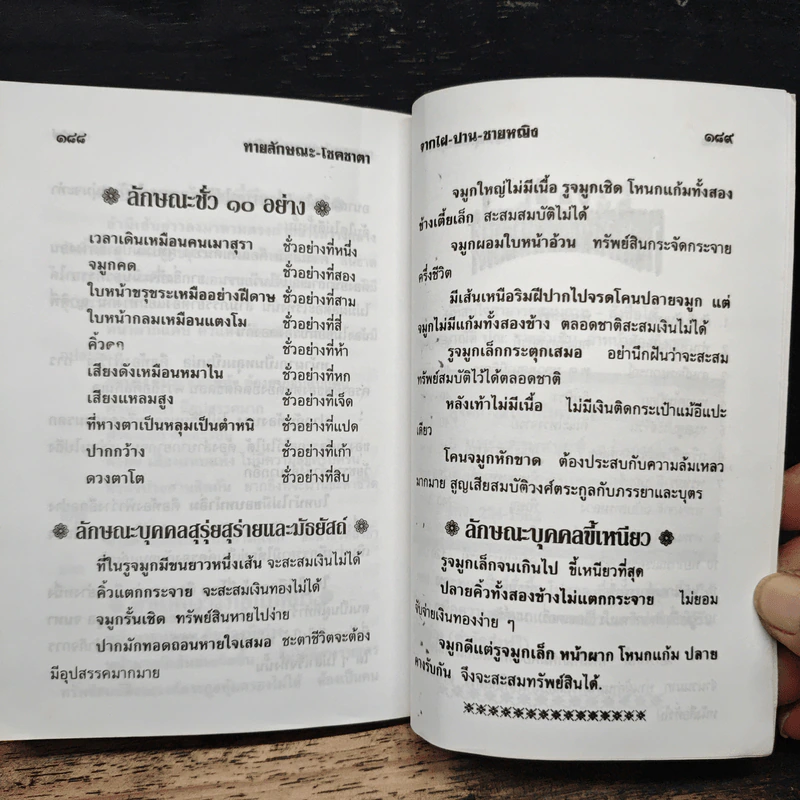 ๑๘๘
ทายลักษณะ-โชคชาตา
ลักษณะชั่ว ๑๐ อย่าง
เวลาเดินเหมือนคนเมาสุรา ชั่วอย่างที่หนึ่ง
จมูกคด ชั่วอย่างที่สอง
ใบหน้าขรุขระเหมืออย่างฝีดาษ ชั่วอย่างที่สาม
ใบหน้ากลมเหมือนแตงโม ชั่วอย่างที่สี่
คิ้วตก ชั่วอย่างที่ห้า
เสียงดังเหมือนหมาไน ชั่วอย่างที่หก
เสียงแหลมสูง ชั่วอย่างที่เจ็ด
ที่หางตาเป็นหลุมเป็นตำหนิ ชั่วอย่างที่แปด
ปากกว้าง ชั่วอย่างที่เก้า
ดวงตาโต ชั่วอย่างที่สิบ
ลักษณะบุคคลสุรุ่ยสุร่ายและมัธยัสถ์
ที่ในรูจมูกมีขนยาวหนึ่งเส้น จะสะสมเงินไม่ได้
คิ้วแตกกระจาย จะสะสมเงินทองไม่ได้
จมูกรั้นเชิด ทรัพย์สินหายไปง่าย
ปากมักทอดถอนหายใจเสมอ ชะตาชีวิตจะต้อง
มีอุปสรรคมากมาย
จากไฝ-ปาน-ชายหญิง
๑๘๙
จมูกใหญ่ไม่มีเนื้อ รูจมูกเชิด โหนกแก้มทั้งสอง
ข้างเตี้ยเล็ก สะสมสมบัติไม่ได้
จมูกผอมใบหน้าอ้วน ทรัพย์สินกระจัดกระจาย
ครึ่งชีวิต
มีเส้นเหนือริมฝีปากไปจรดโคนปลายจมูก แต่
จมูกไม่มีแก้มทั้งสองข้าง ตลอดชาติสะสมเงินไม่ได้
รูจมูกเล็กกระตุกเสมอ อย่านึกฝันว่าจะสะสม
ทรัพย์สมบัติไว้ได้ตลอดชาติ
หลังเท้าไม่มีเนื้อ ไม่มีเงินติดกระเป๋าแม้อีแปะ
เดียว
โคนจมูกหักขาด ต้องประสบกับความล้มเหลว
มากมาย สูญเสียสมบัติวงศ์ตระกูลกับภรรยาและบุตร
ลักษณะบุคคลขี้เหนียว
รูจมูกเล็กจนเกินไป ขี้เหนียวที่สุด
ปลายคิ้วทั้งสองข้างไม่แตกกระจาย ไม่ยอม
จับจ่ายเงินทองง่าย ๆ
จมูกดีแต่รูจมูกเล็ก หน้าผาก โหนกแก้ม ปลาย
คางรับกัน จึงจะสะสมทรัพย์สินได้.